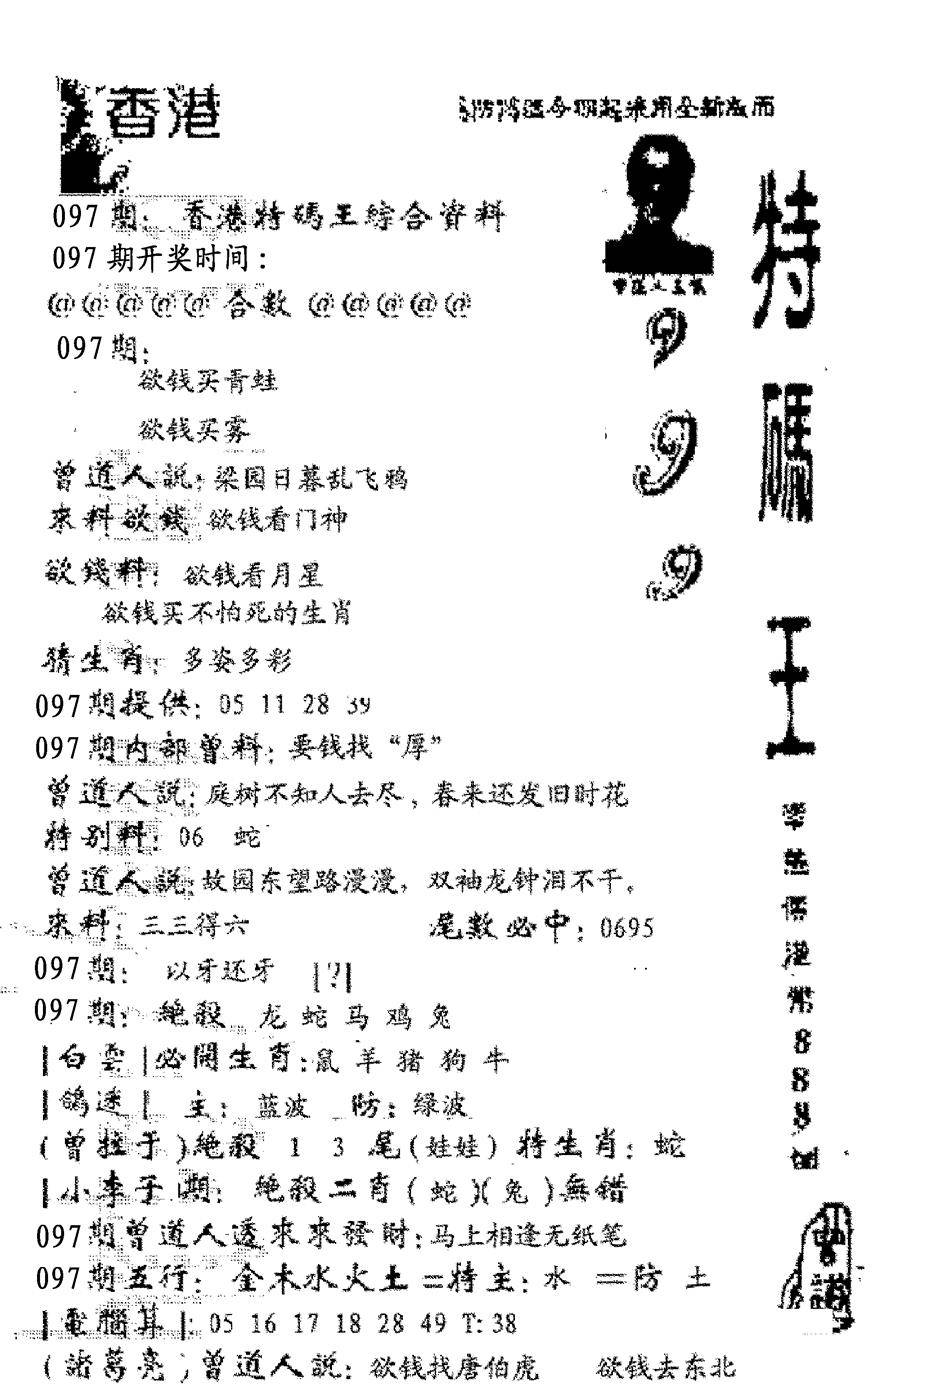 香港
097期：香港特碼王綜合資料
097期开奖时间：
@@@@@合数@@@@@
097期：
欲钱买青蛙
欲钱买雾
曾道人説：梁园日暮乱飞鸦
來料欲錢 欲钱看门神
欲錢料：欲钱看月星
欲钱买不怕死的生肖
猜生肖：多姿多彩
097期提供：05 11 28 39
097期内部曾料：要钱找“厚”
曾道人説：庭树不知人去尽，春来还发旧时花
特别料：06 蛇
曾道人説：故园东望路漫漫，双袖龙钟泪不干。
來料：三三得六 尾数必中：0695
097期：以牙还牙 |?|
097期：絶殺 龙 蛇 马 鸡 兔
|白雲|必開生肖：鼠 羊 猪 狗 牛
|鴿迷| 主：蓝波 防：绿波
(曾拉于)絶殺 1 3 尾(娃娃)特生肖：蛇
|小李子|期：絶殺二肖(蛇)(兔)無錯
097期曾道人透來來發財：马上相逢无纸笔
097期五行：金木水火土=特主：水 =防 土
|電腦算|：05 16 17 18 28 49 T:38
(諸葛亮)曾道人説：欲钱找唐伯虎 欲钱去东北
999
特碼王
888